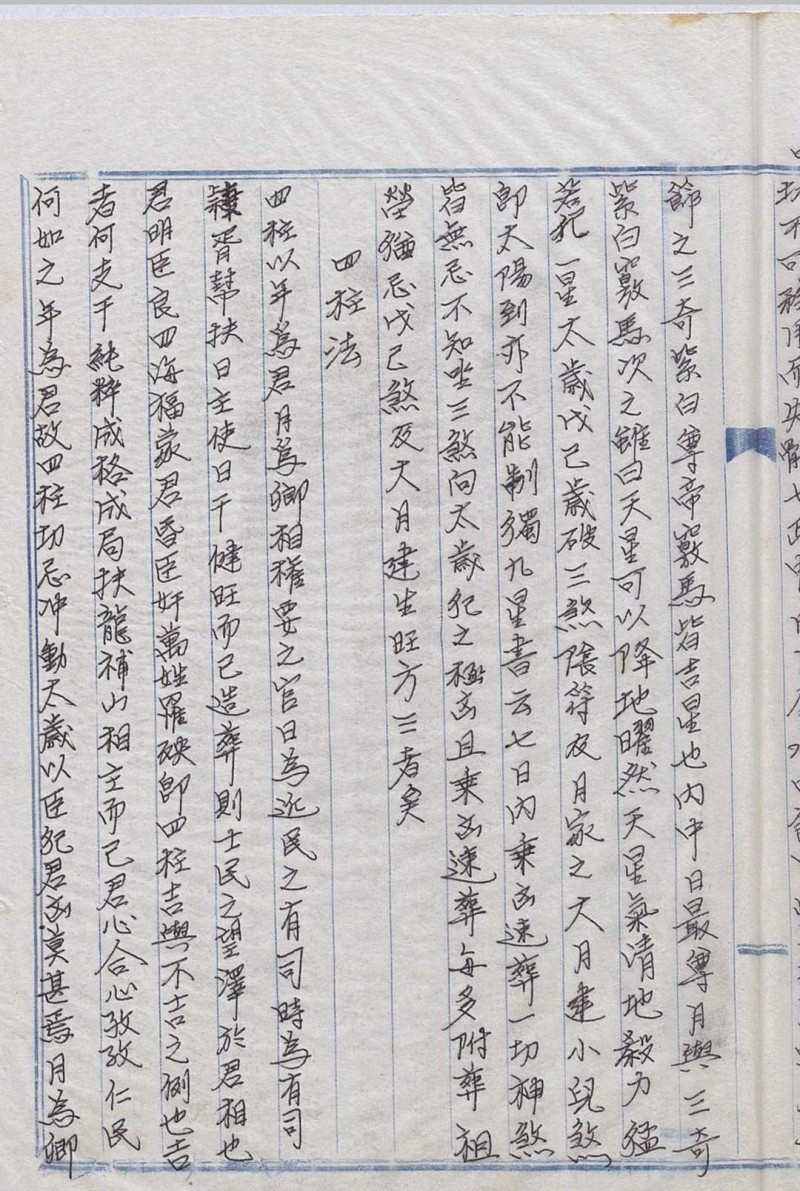 節之三奇紫白尊帝竅馬皆吉星也內中日最尊月與三奇
紫白竅馬次之雖曰天星可以降地曜然天星氣清地殺力猛
若犯一星太歲戊己歲破三煞陰符及月家之大月建小兒煞
即太陽到亦不能制獨九星書云七日內乘凶速葬一切神煞
皆無忌不知坐三煞向太歲犯之極凶且乘凶速葬每多附葬祖
塋猶忌戊己煞及大月建生旺方三者矣
四柱法
四柱以年為君月為卿相權要之官日為近民之有司時為有司
隸胥幫扶日主使日干健旺而已造葬則士民之望澤於君相也
君明臣良四海福家君昏臣奸萬姓罹殃即四柱吉與不吉之例也吉
者何支干純粹成格成局扶龍補山相主而已君心合心孜孜仁民
何如之年為君故四柱切忌沖動太歲以臣犯君凶莫甚焉月為卿